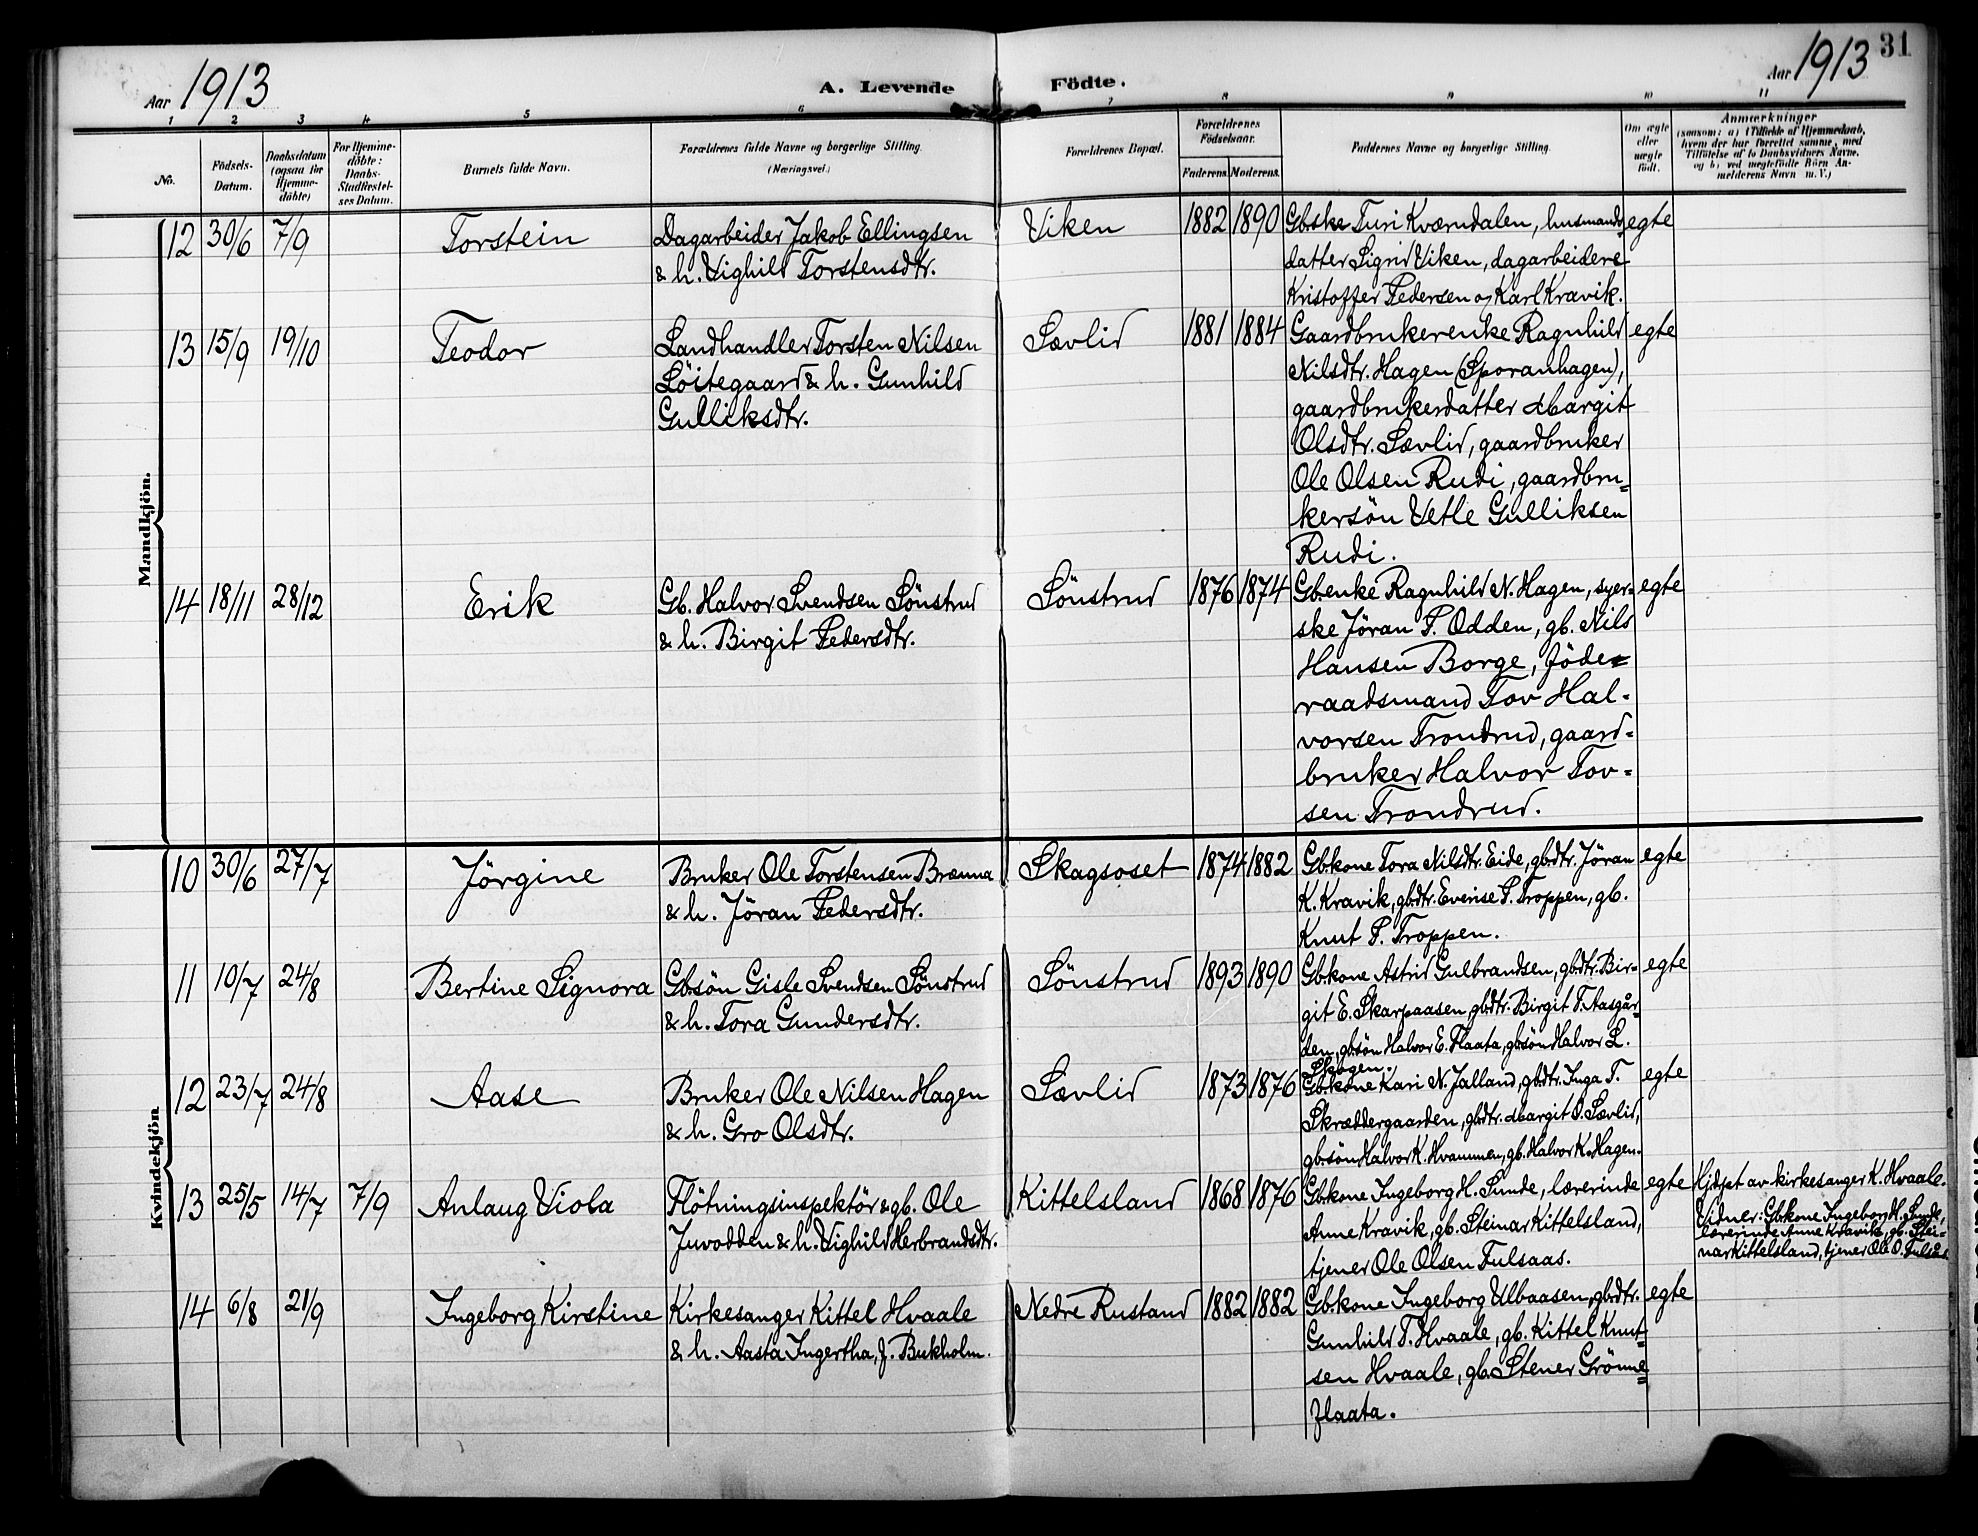 Aar 1913
A. Levende Födte.
Aar 1913
31
1 2 3 4 5 6 7 8 9 10 11
No.
Födsels-Datum.
Daabsdatum (ogsaa for Hjemme-döbte)
For Hjemme-döbte: Daabs-Stadfæstel-ses Datum.
Barnets fulde Navn.
Forældrenes fulde Navne og borgerlige Stilling.
(Næringsvei.)
Forældrenes Bopæl.
Forældrenes Födselsaar.
Faderens. Moderens.
Faddernes Navne og borgerlige Stilling.
Om ægte eller uægte født.
Anmærkninger
(saasom: a) i Tilfælde af Hjemmedaab,
hvem der har forrettet samme, med
Tilföielse af to Daabsvidners Navne,
og b) ved uægtefödte Börn An-
melderens Navn m. V.)
Mandkjön.
12 30/6 7/9 Torstein
Dagarbeider Jakob Ellingsen
& h. Vighild Torstensdtr.
Viken 1882 1890
Gbske Turi Kværndalen, husmands-
datter Sigrid Viken, dagarbeidere
Kristoffer Pedersen og Karl Kravik.
egte
13 15/9 19/10 Teodor
Landhandler Torsten Nilsen
Löitegaard & h. Gunhild
Gulliksdtr.
Sævlid 1881 1884
Gaardbrukerenke Ragnhild
Nilsdtr. Hagen (Sporanhagen),
gaardbrukerdatter Margit
Olsdtr. Sævlid, gaardbruker
Ole Olsen Rudi, gaardbru=
kersön Vetle Gulliksen
Rudi.
egte
14 18/11 28/12 Erik
Gb. Halvor Svendsen Sönstrud
& h. Birgit Pedersdtr.
Sönstrud 1876 1874
Gbenke Ragnhild N. Hagen, syer-
ske Jöran P. Odden, gb. Nils
Hansen Borge, föde=
raadsmand Tov Hal-
vorsen Trondrud, gaard-
bruker Halvor Tov-
sen Trondrud.
egte
Kvindekjön
10 30/6 27/7 Jörgine
Bruker Ole Torstensen Brænna
& h. Jöran Pedersdtr.
Skagsoset 1874 1882
Gbkone Tora Nilsdtr. Eide, gbdtr. Jöran
K. Kravik, gbdtr. Everise P. Troppen, gb.
Knut P. Troppen.
egte
11 10/7 24/8 Bertine Signora
Gbsön Gisle Svendsen Sönstrud
& h. Tora Gundersdtr.
Sönstrud 1893 1890
Gbkone Astrid Gulbrandsen, gbdtr. Bir-
git E. Skarpaasen, gbdtr. Birgit T. Aasgår-
den, gbsön Halvor E. Flaata, gbsön Halvor L.
Skogen.
egte
12 23/7 24/8 Aase
Bruker Ole Nilsen Hagen
& h. Gro Olsdtr.
Sævlid 1873 1876
Gbkone Kari N. Jalland, gbdtr. Inga T.
Skræddergaarden, gbdtr. Margit O. Sævlid,
gbsön Halvor K. Hvammen, gb. Halvor K. Hagen.
egte
13 25/5 14/7 7/9 Anlaug Viola
Flötningsinspektör & gb. Ole
Juvodden & h. Vighild Herbrandsdtr.
Kittelsland 1868 1876
Gbkone Ingeborg H. Sunde, lærerinde
Anne Kravik, gb. Steinar Kittelsland,
tjener Ole Olsen Fulsaas.
egte
Hjdpt av kirkesanger K. Hvaale.
Vidner: Gbkone Ingeborg H. Sunde,
lærerinde Anne Kravik, gb. Stei-
nar Kittelsland, tjener Ole O. Fulsås
14 6/8 21/9 Ingeborg Kirstine
Kirkesanger Kittel Hvaale
& h. Aasta Ingertha, f. Bukholm.
Nedre Rustand 1882 1882
Gbkone Ingeborg Ulbaasen, gbdtr.
Gunhild T. Hvaale, gb. Kittel Knut-
sen Hvaale, gb. Stener Grönne=
flaata.
egte